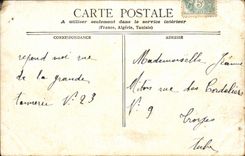 CARTE POSTALE
A utiliser seulement dans le service intérieur
(France, Algérie, Tunisie)
CORRESPONDANCE
ADRESSE
repond moi rue
de la grande
tannerie N° 23
Mademoiselle Jeanne
rue des Cordeliers
N° 9
Troyes
Aube